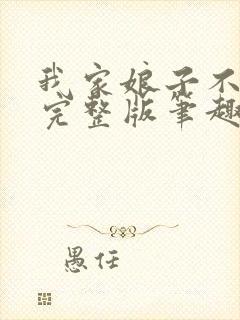 我家娘子不
完整版笔趣
愚任